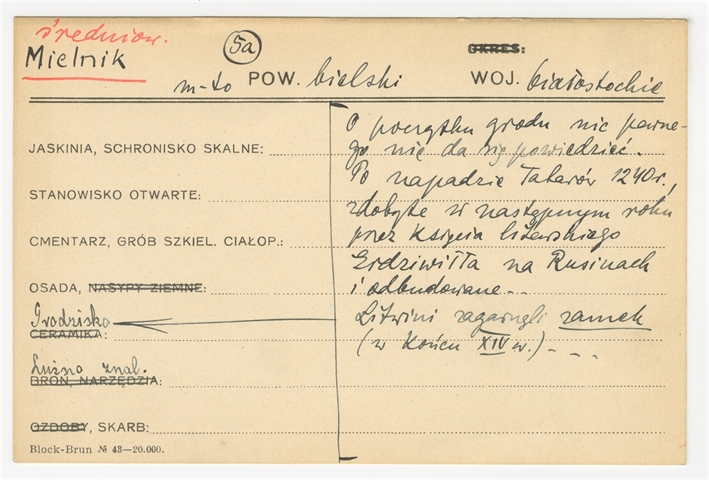 średniow.
Mielnik
5a
OKRES:
m-to POW. bielski WOJ. białostockie
JASKINIA, SCHRONISKO SKALNE:
STANOWISKO OTWARTE:
CMENTARZ, GRÓB SZKIEL. CIAŁOP.:
OSADA, NASYPY ZIEMNE:
Grodzisko
CERAMIKA:
Luźno znal.
BROŃ, NARZĘDZIA:
OZDOBY, SKARB:
Block-Brun № 43—20.000.
O początku grodu nic pewne-
go nie da się powiedzieć.
Po napadzie Tatarów 1240 r.,
zdobyte w następnym roku
przez księcia litewskiego
Erdziwiłła na Rusinach
i odbudowane...
Litwini zagarnęli zamek
(w końcu XIV w.) - - -